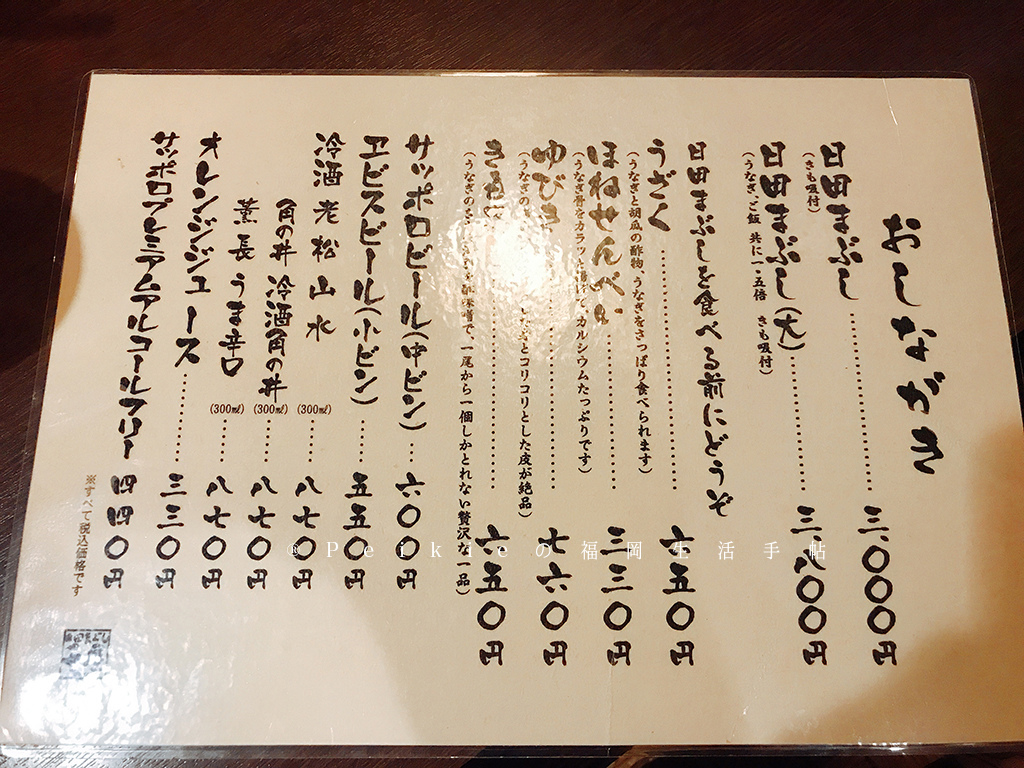 おしながき
日田まぶし………三、〇〇〇円
（きも吸付）
日田まぶし（大）………三、八〇〇円
（うなぎ、ご飯 共に一・五倍 きも吸付）
日田まぶしを食べる前にどうぞ
うざく………六五〇円
（うなぎと胡瓜の酢物、うなぎをさっぱり食べられます）
ほねせんべい………三三〇円
（うなぎ骨をカラッと揚げて、カルシウムたっぷりです）
ゆびき………七六〇円
（うなぎの コリコリとした皮が絶品）
き………六五〇円
（うなぎの 一尾から一個しかとれない贅沢な一品）
サッポロビール（中ビン）…六〇〇円
ヱビスビール（小ビン）……五五〇円
冷酒 老松 山水（300㎖）……八七〇円
角の井 冷酒角の井（300㎖）……八七〇円
薫長 うま辛口（300㎖）……八七〇円
オレンジジュース………三三〇円
サッポロプレミアムアルコールフリー 四四〇円
※すべて税込価格です
®Peikieの福岡生活手帖